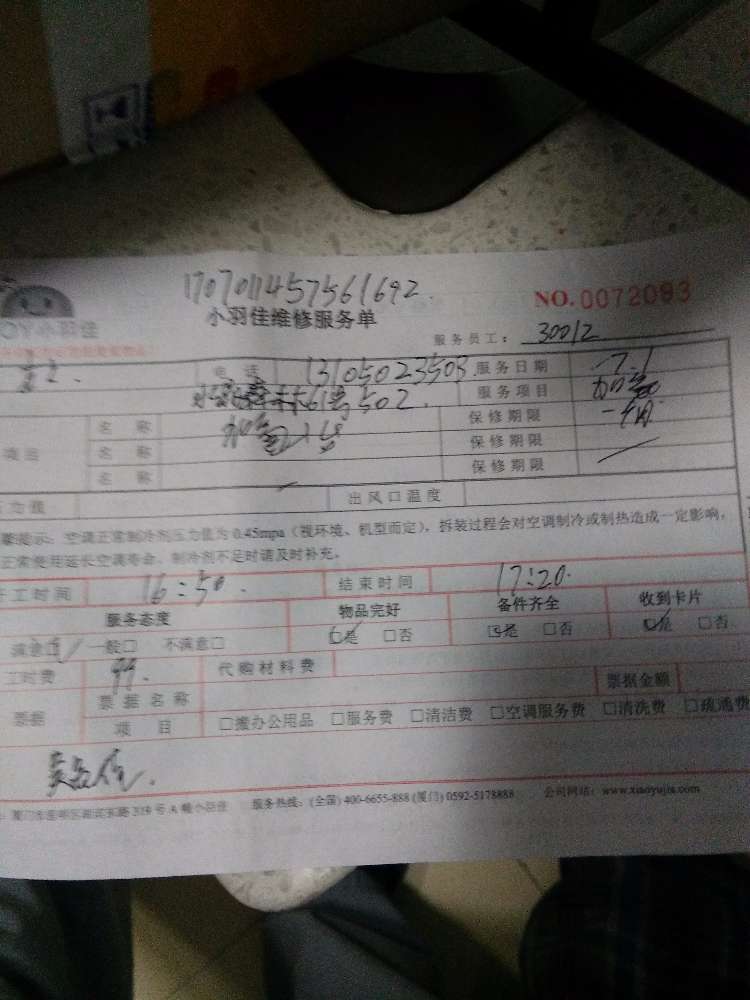 170701457561692
小羽佳维修服务单
NO.0072093
小羽佳
服务员工： 30012
电 话 13105023503 服务日期 7.1
61号502. 服务项目 加氟
名 称 加氟 保修期限 一个月
项目 名 称 保修期限
名 称 保修期限
力值 出风口温度
提示：空调正常制冷剂压力值为 0.45mpa（视环境、机型而定），拆装过程会对空调制冷或制热造成一定影响，
正常使用延长空调寿命，制冷剂不足时请及时补充。
开工时间 16:50. 结束时间 17:20.
服务态度 物品完好 备件齐全 收到卡片
满意☑ 一般□ 不满意□ ☑是 □否 ☑是 □否 ☑是 □否
工时费 99. 代购材料费
票据 票据名称 票据金额
项 目 □搬办公用品 □服务费 □清洁费 □空调服务费 □清洗费 □疏通费
219 号 A 幢小羽佳 服务热线：(全国) 400-6655-888 (厦门) 0592-5178888 公司网站：www.xiaoyujia.com